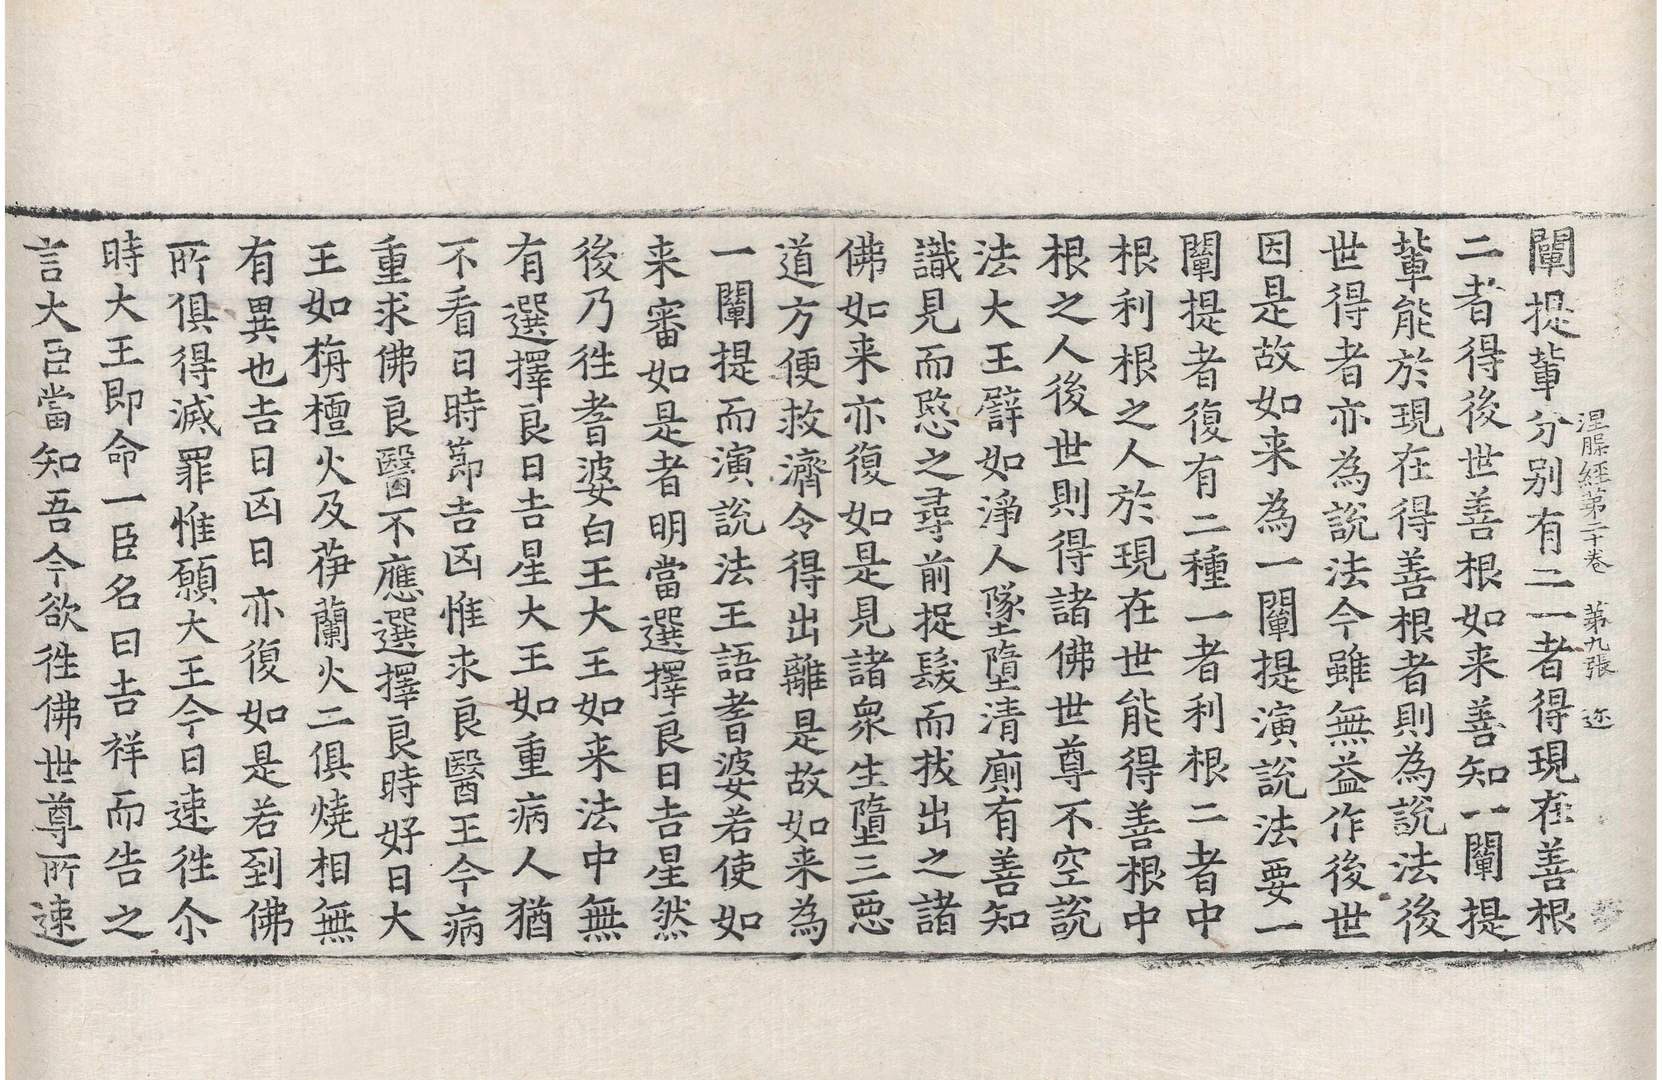 涅槃經第二十卷 第九張 迩
闡提輩分別有二一者得現在善根
二者得後世善根如来善知一闡提
輩能於現在得善根者則為說法後
世得者亦為說法今雖無益作後世
因是故如来為一闡提演說法要一
闡提者復有二種一者利根二者中
根利根之人於現在世能得善根中
根之人後世則得諸佛世尊不空說
法大王譬如淨人墜墮清廁有善知
識見而愍之尋前捉髮而拔出之諸
佛如来亦復如是見諸衆生墮三惡
道方便救濟令得出離是故如来為
一闡提而演說法王語耆婆若使如
来審如是者明當選擇良日吉星然
後乃往耆婆白王大王如来法中無
有選擇良日吉星大王如重病人猶
不看日時節吉凶惟求良醫王今病
重求佛良醫不應選擇良時好日大
王如栴檀火及荓蘭火二俱燒相無
有異也吉日凶日亦復如是若到佛
所俱得滅罪惟願大王今日速往尒
時大王即命一臣名曰吉祥而告之
言大臣當知吾今欲往佛世尊所速